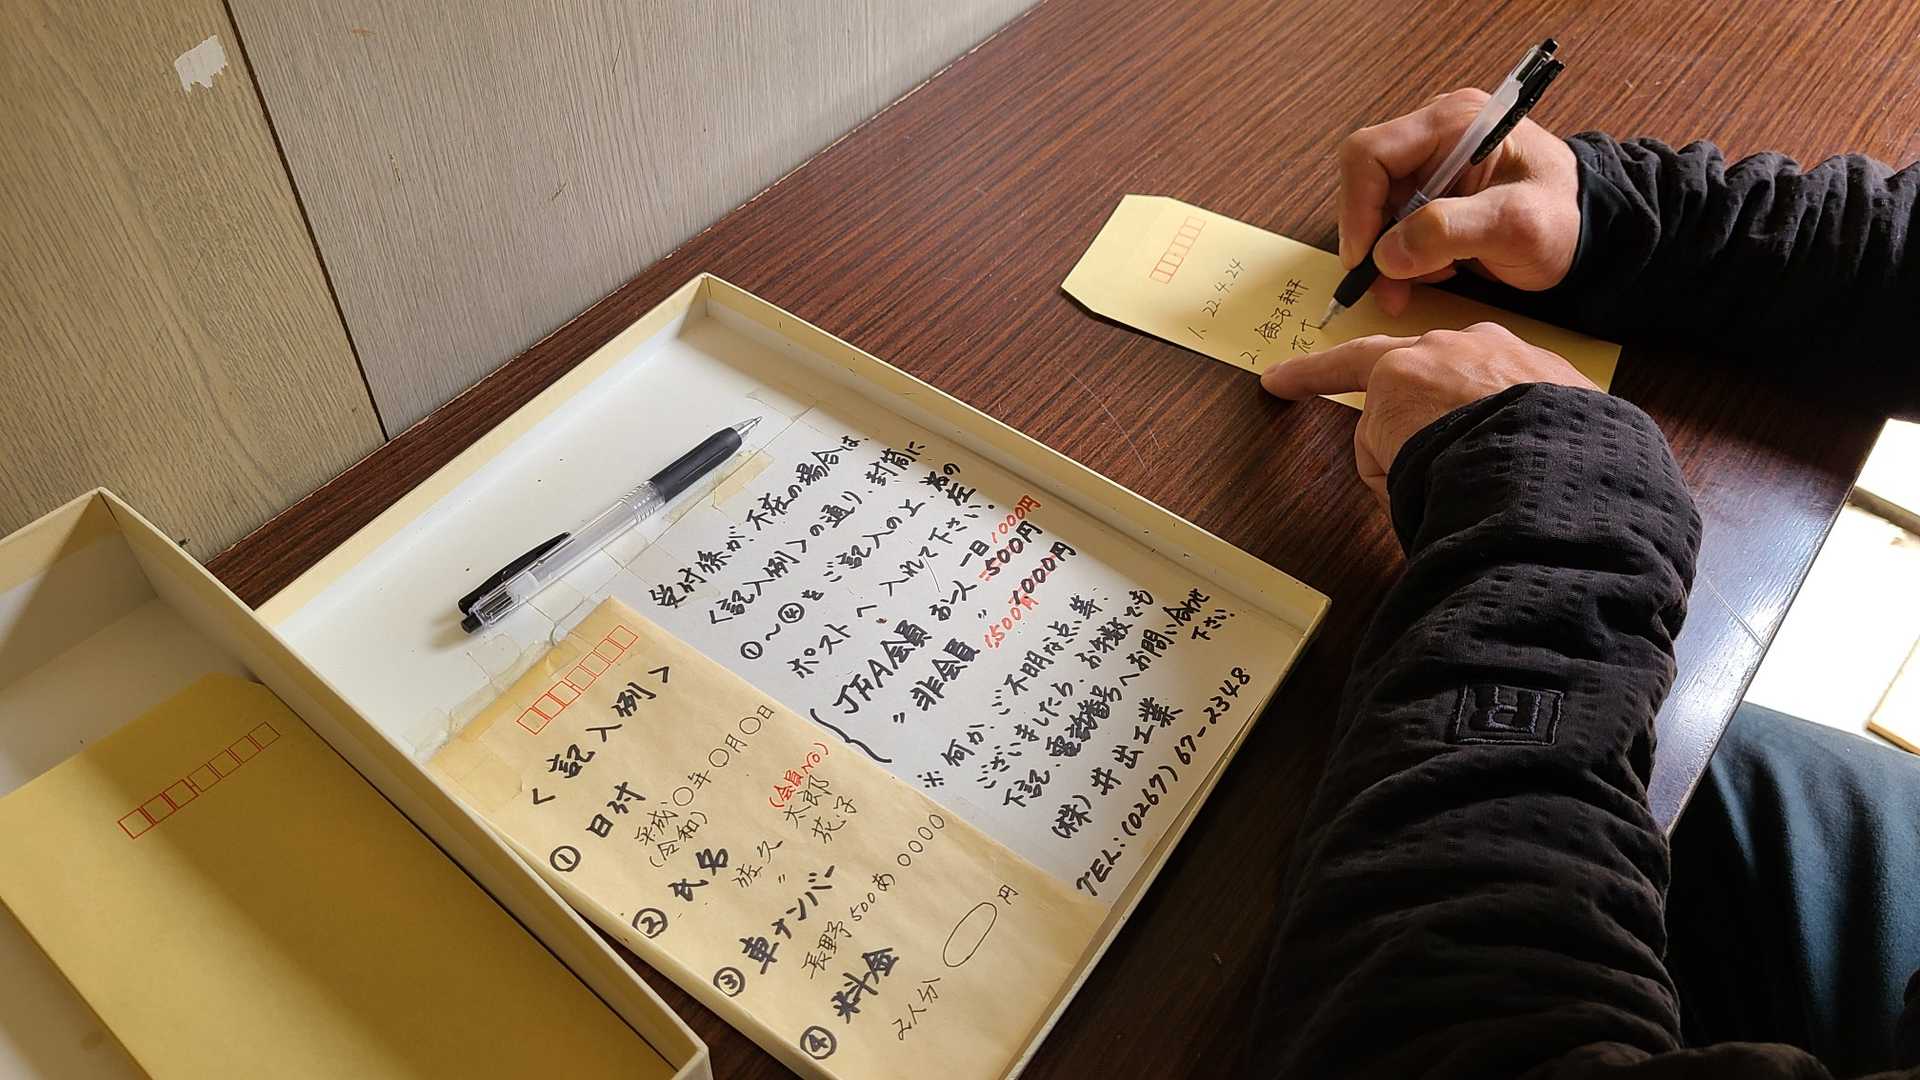 受付係が、不在の場合は、
〈記入例〉の通り、封筒に
①〜④をご記入の上、右の
ポストへ入れて下さい。
JHA会員 お一人 一日 1000円
〃 非会員 〃
1500円
※ 何かご不明な点等、
ございましたら、お手数でも
下記、電話番号へお問い合わせ
下さい
(株)井出工業
TEL:(0267)67-2348
〈記入例〉
① 日付
平成〇年〇月〇日
(令和)
② 氏名
(会員No)
佐久 太郎
〃 花子
③ 車ナンバー
長野500あ0000
④ 料金
2人分 円
1、22.4.24
2、飯沼 耕平
花